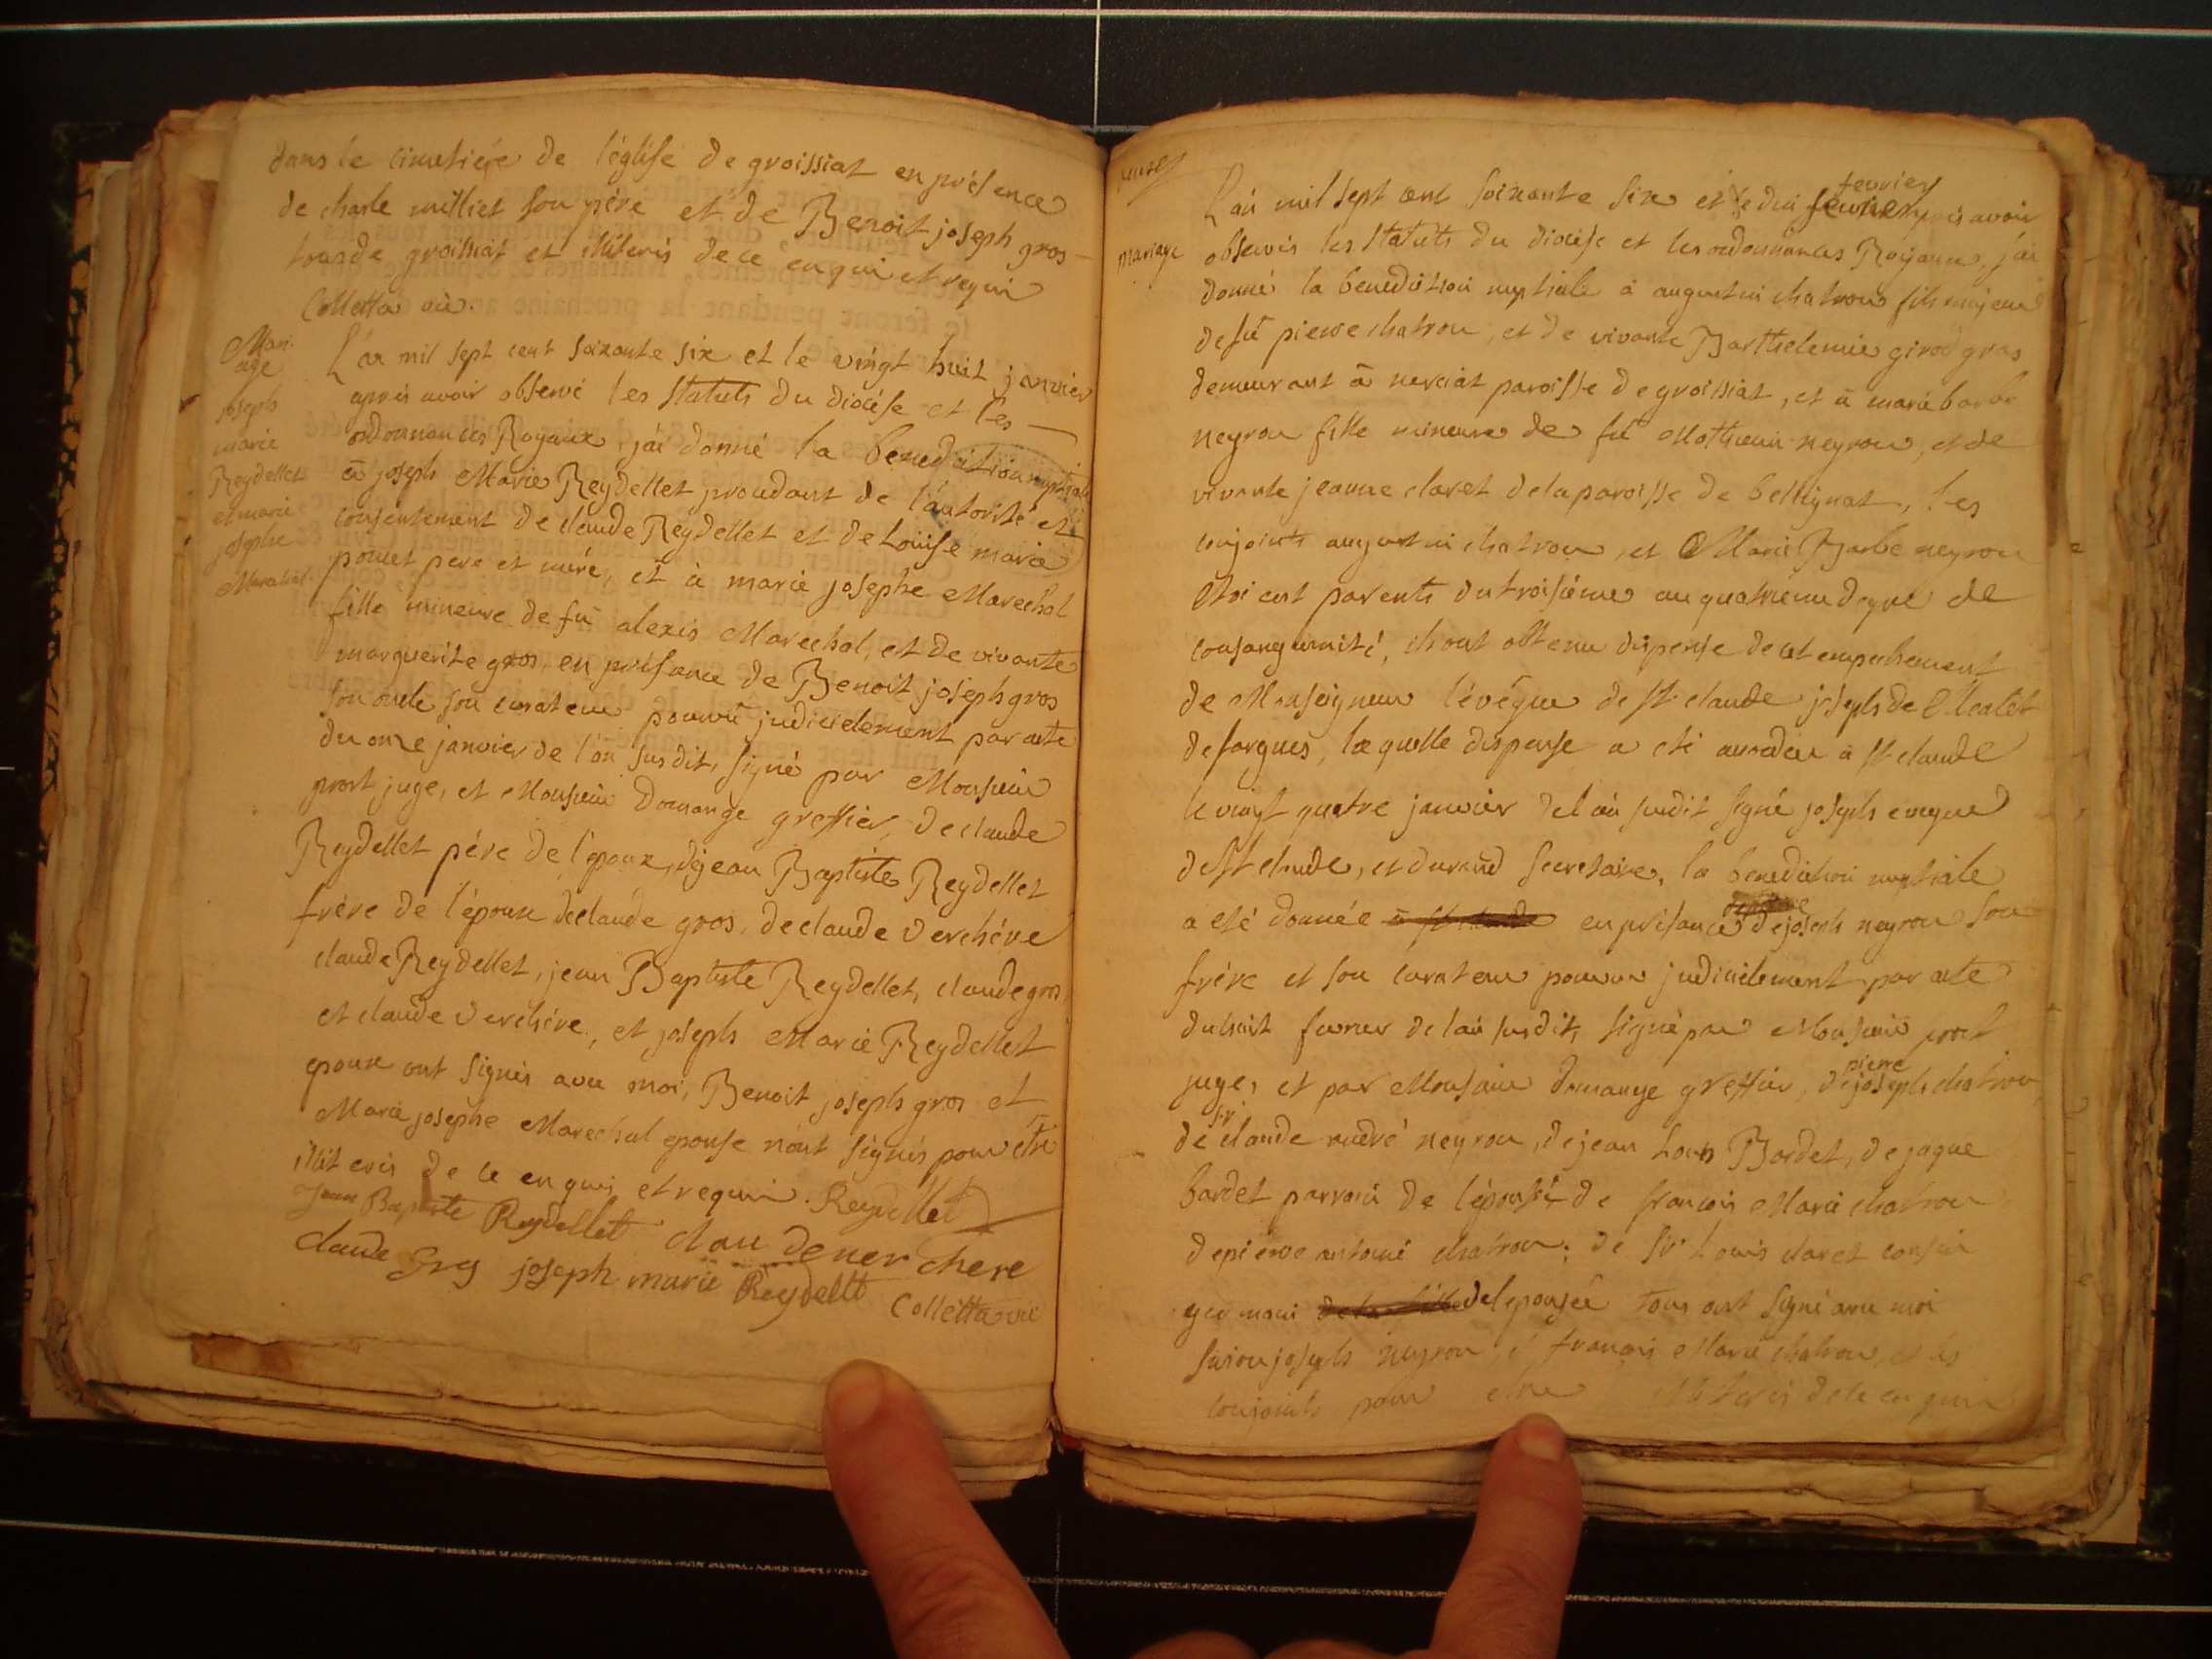 dans le cimetiére de l'églife de groissiat en présence
de charle milliet son pére et de Benoit joseph gros
tous de groissiat et illiteris de ce enquis et requi
Colletta vic.
Mari
age
joseph
marie
Reydellet
et marie
josephe
Marechal.
L'an mil sept cent soixante six et le vingt huit janvier
aprés avoir observé les statuts du diocése et les
ordonnances Royaux, j'ai donné la benediction nuptiale
à joseph Marie Reydellet procedant de l'autorité et
consentement de claude Reydellet et de Louise marie
poncet pere et mére, et à marie josephe Marechal
fille mineure de fû alexis Marechal, et de vivante
marguerite gros, en présance de Benoit joseph gros
son oncle son curateur pourvû judicielement par acte
du onze janvier de l'an susdit, signé par Monsieur
prost juge, et Monsieur Domange greffier, de claude
Reydellet pére de l'époux, de jean Baptiste Reydellet
frére de l'époux de claude gros, de claude Verchére
claude Reydellet, jean Baptiste Reydellet, claude gros,
et claude Verchére, et joseph Marie Reydellet
epoux ont signés avec moi, Benoit joseph gros et
Marie josephe Marechal epouse n'ont signés pour être
illit eris de ce enquis et requi. Reydellet
jean Baptiste Reydellet clau de ver chere
claude Gros joseph marie Reydellt
Collétta vic
mariage
fevrier
L'an mil sept cent soixante six et le dix fevrier aprés avoir
observés les statuts du diocése et les ordonnances Royaux, j'ai
donné la benediction nuptiale à augustin chatron fils majeur
de fû pierre chatron, et de vivante Barthelemie girod gros
demeurant à nerciat paroisse de groissiat, et à marie barbe
neyron fille mineure de fû Mathieu neyron, et de
vivante jeanne claret de la paroisse de bellignat, les
conjoints augustin chatron, et Marie Barbe neyron
etoient parents du troisiéme au quatriéme degré de
consanguinité, ils ont obtenu dispense de cet empechement
de Monseigneur l'évéque de st claude joseph de Mealet
de fargues, laquelle dispense a eté accordée à st claude
le vingt quatre janvier de l'an susdit signé joseph eveque
de st claude, et durand secretaire, la benediction nuptiale
a eté donnée en présance de joseph neyron son
frére et son curateur pourvu judicielement par acte
du huit fevrier de l'an susdit, signé par Monsieur prost
pierre
juge, et par Monsieur domange greffier, de joseph chatron,
sr
de claude andré neyron, de jean Louis Bardet, de jaque
bardet parrain de l'épousée de françois Marie chatron
de pierre antoine chatron, de Sr Louis claret cousin
germain de l'epousée tous ont signé avec moi
sinon joseph neyron, françois Marie chatron, et les
conjoints pour etre illiteris de ce enquis